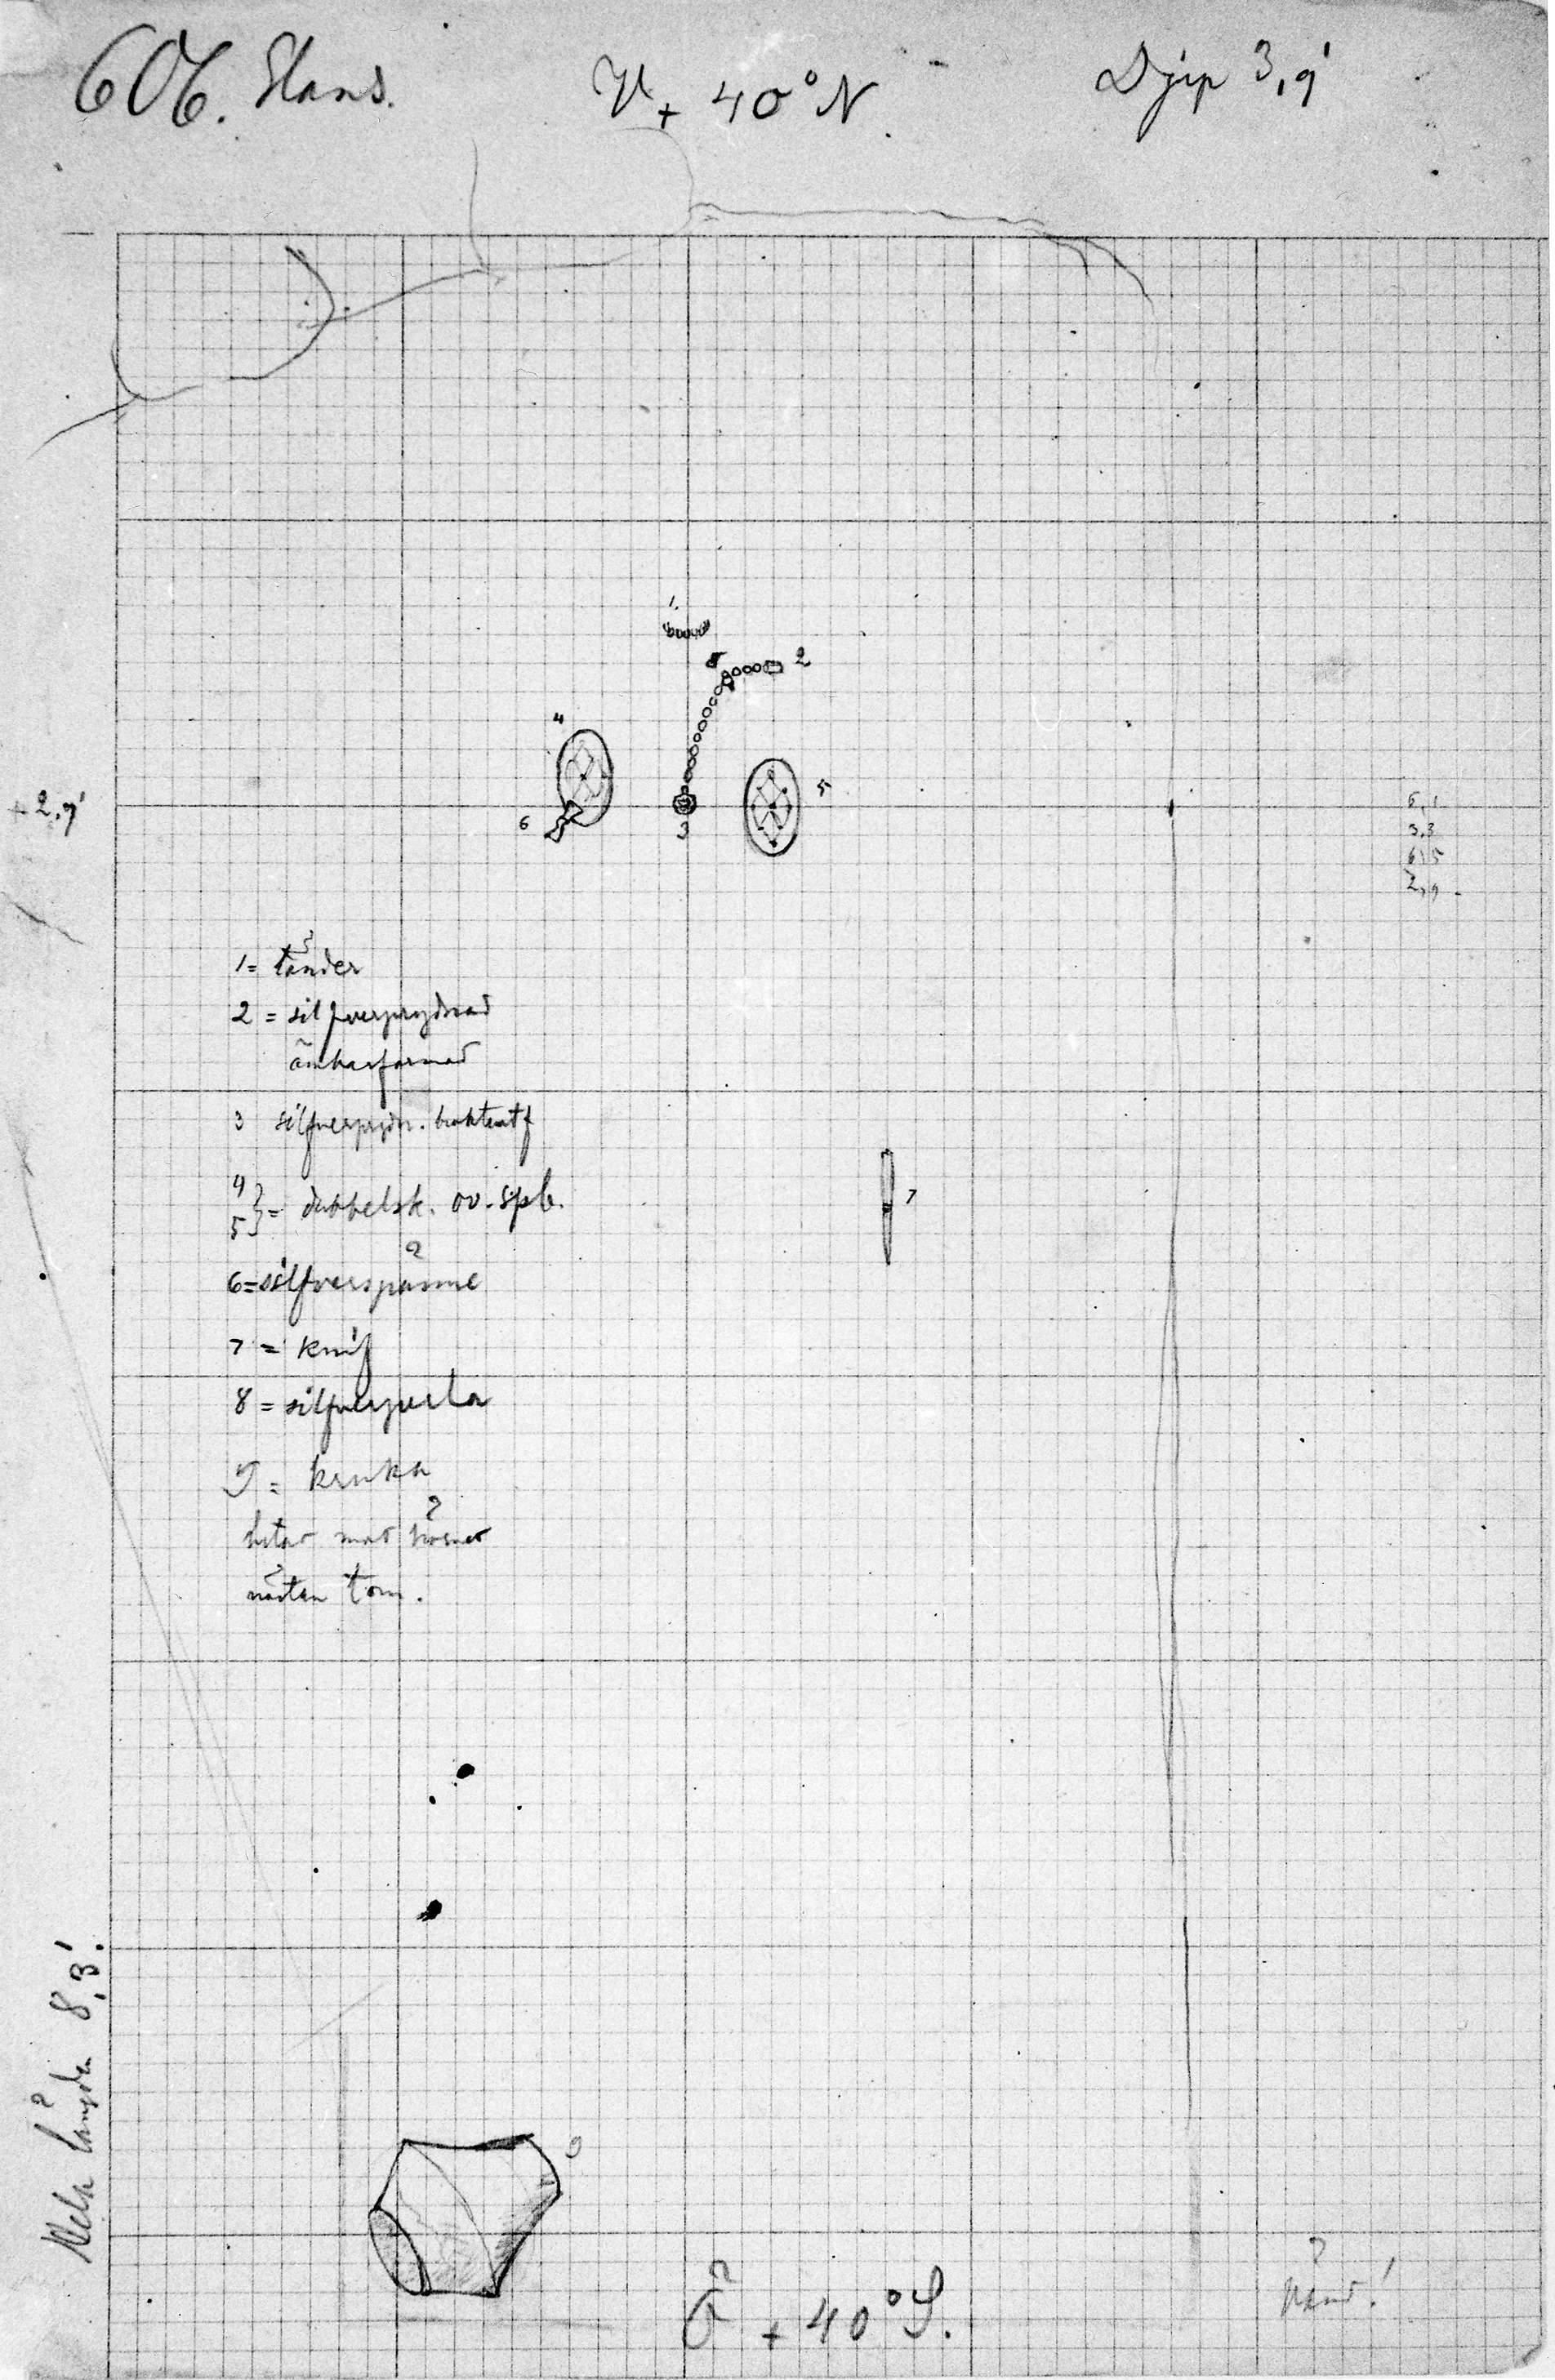 606. Stans.
V + 40° N.
Djup 3,9'
1.
2
4
5
6
3
2,9'
6,1
3,3
6,5
2,9
1 = tänder
2 = silfverprydnad
ämbarformad
3 silfverprydn. brakteatf
4
5 } = dubbelsk. ov. spb.
6 = silfverspänne
7 = knif
7
8 = silfverperla
9 = kruka
lutar mot hörnet
nästan tom.
Hela längden 8,3'.
9
Ö + 40° S.
Vänd!